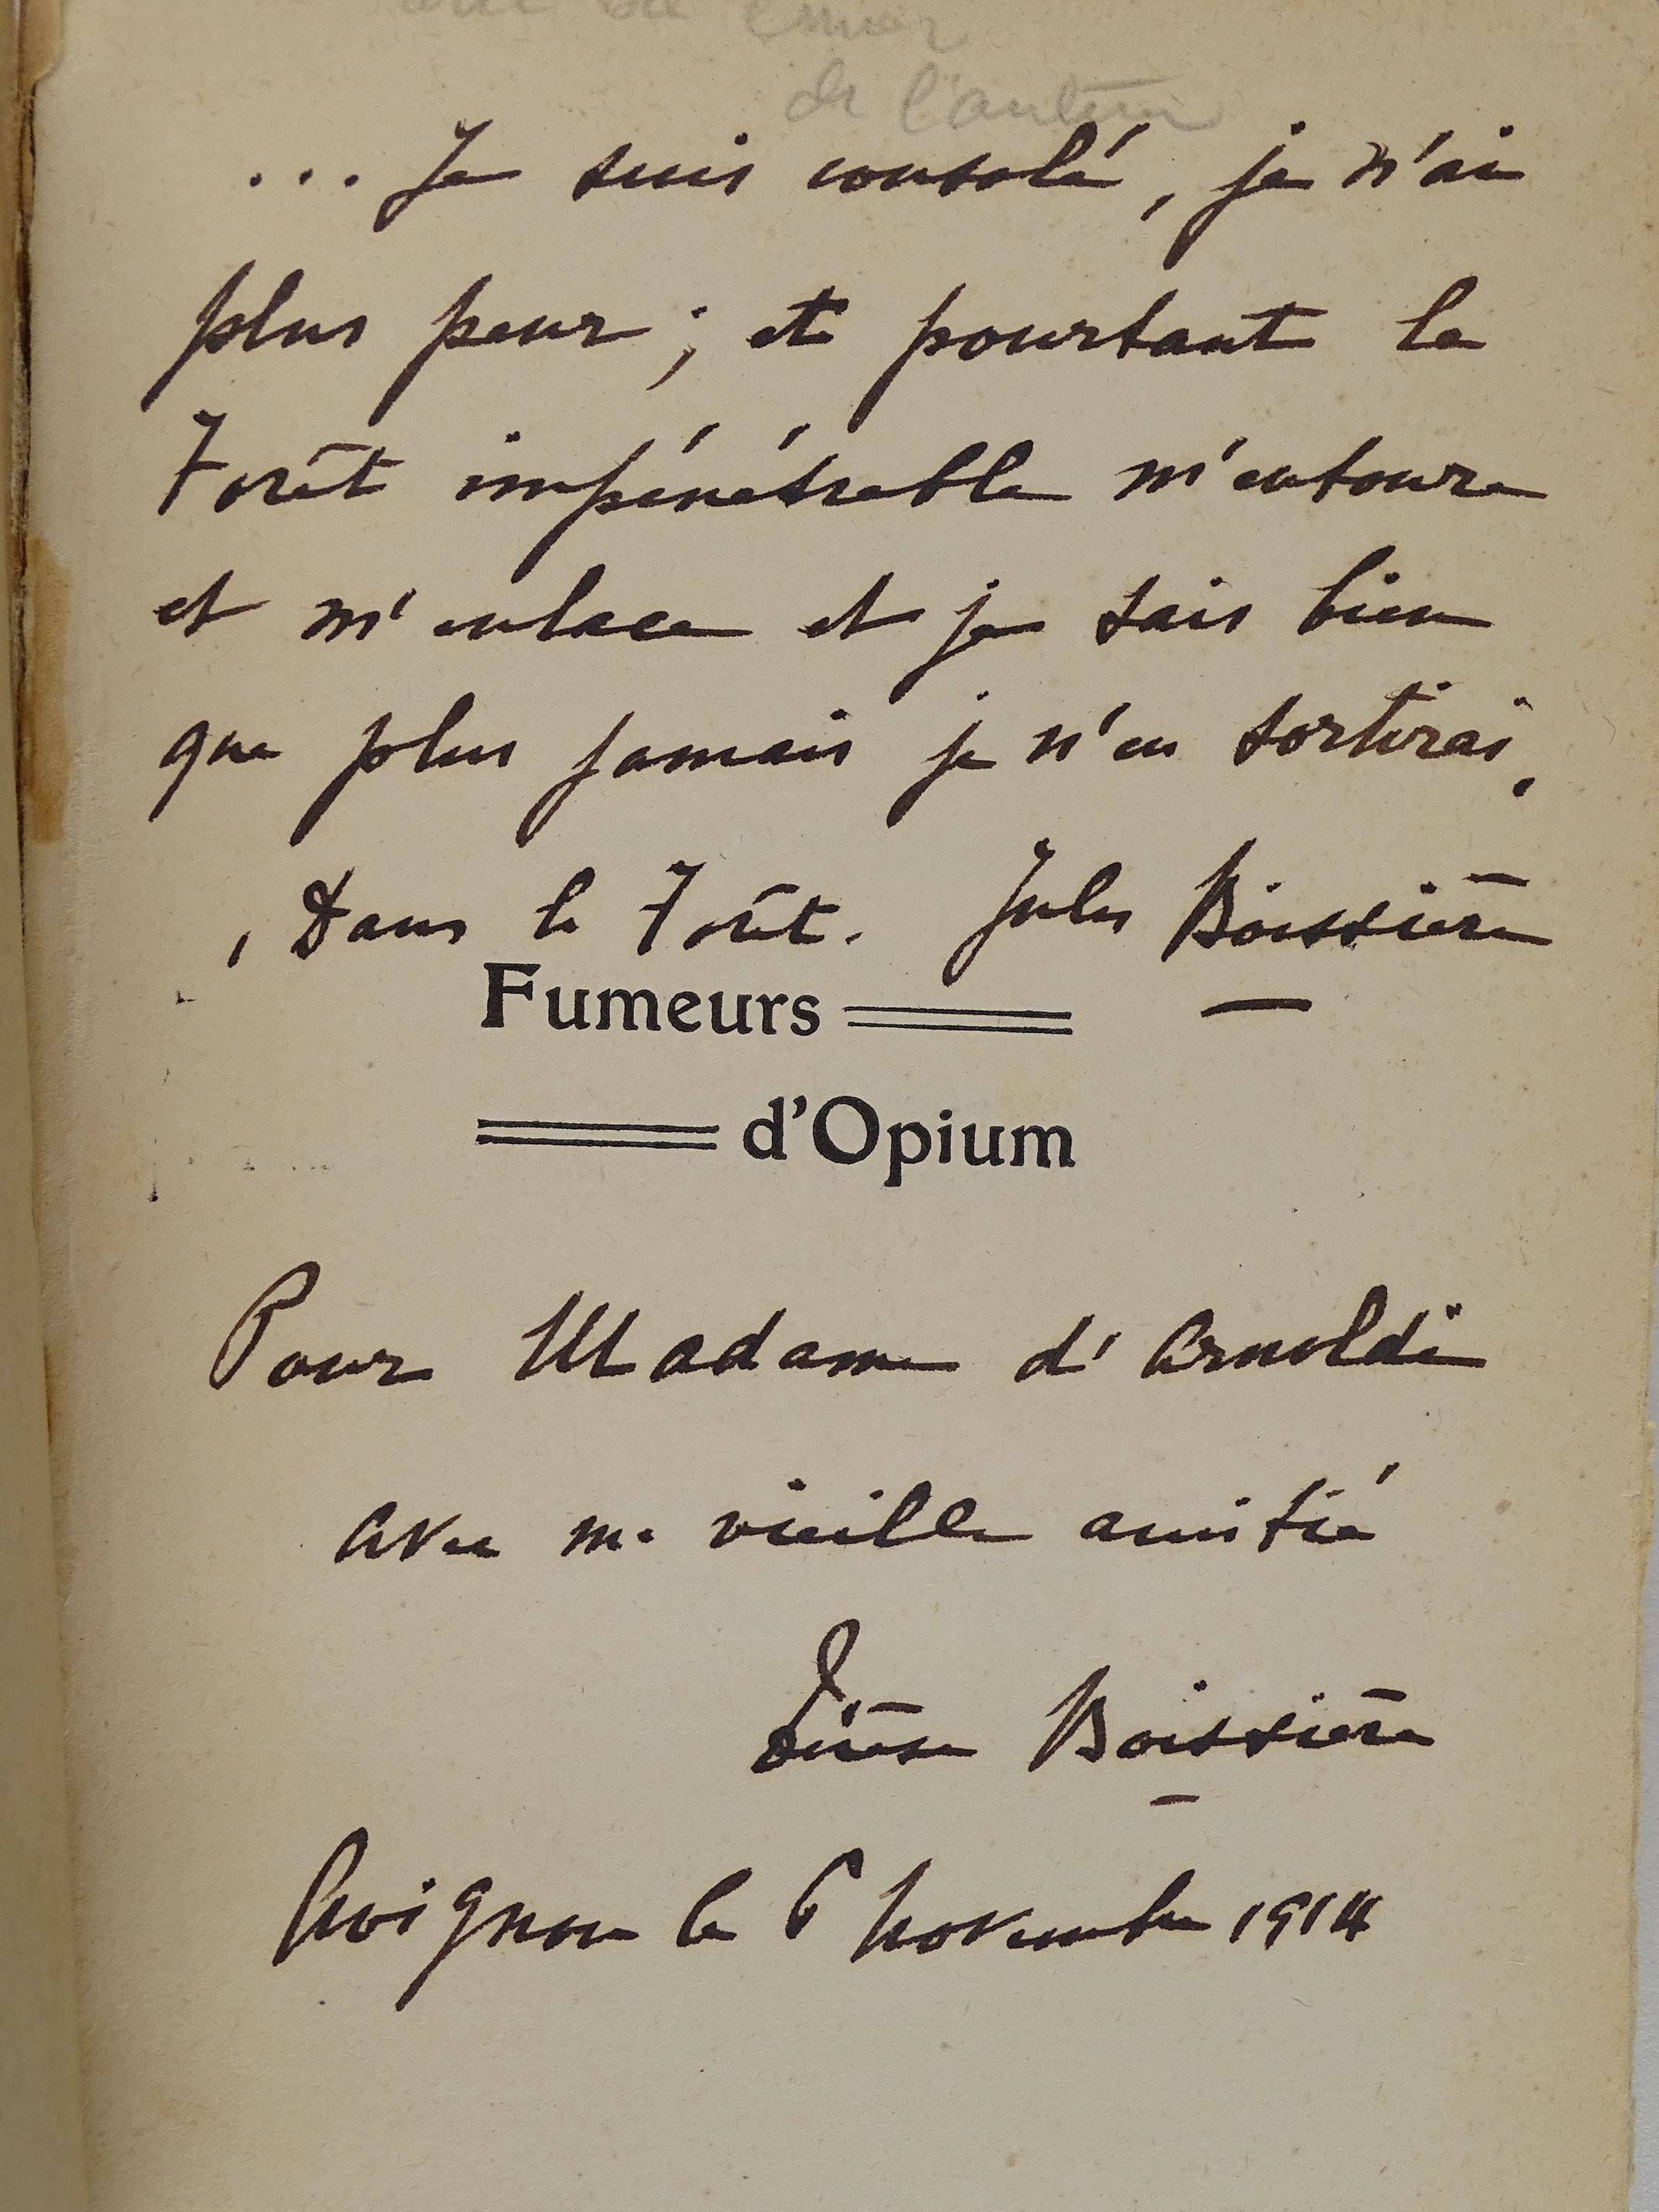 de l'auteur
... Je suis consolé, je n'ai
plus peur ; et pourtant la
Forêt impénétrable m'entoure
et m'enlace et je sais bien
que plus jamais je n'en sortirai,
, Dans la Forêt. Jules Boissière
Fumeurs
d'Opium
Pour Madame d'Arnoldi
avec ma vieille amitié
Boissière
Avignon le 6 Novembre 1914